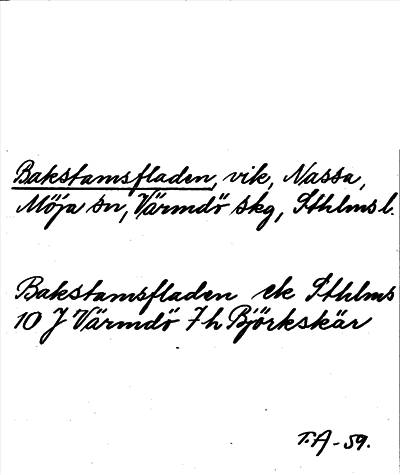 Bakstamsfladen, vik, Nassa,
Möja sn, Värmdö skg, Sthlms l.
Bakstamsfladen ek Sthlms
10 J Värmdö 7h Björkskär
T.A-59.